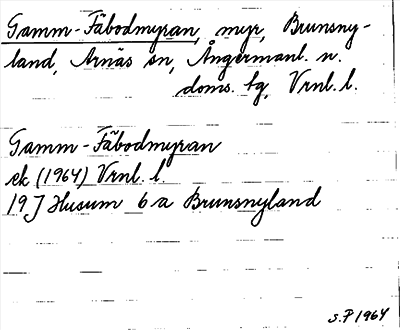 Gamm-Fäbodmyran, myr, Brunsny-
land, Arnäs sn, Ångermanl. n.
doms. tg, Vrnl. l.
Gamm-Fäbodmyran
ek (1964) Vrnl. l.
19J Husum 6a Brunsnyland
S.P 1964